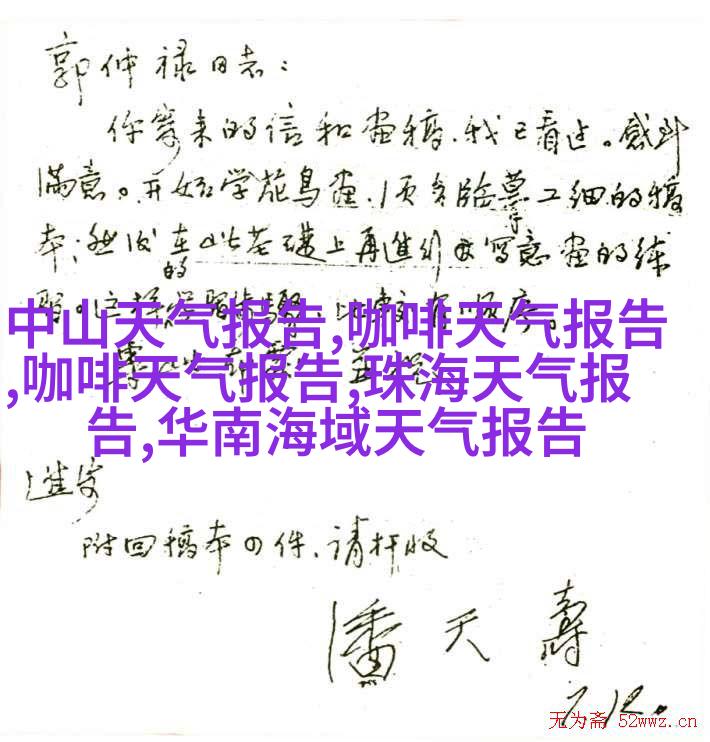 郭仲禄同志：
你寄来的信和画稿，我已看过。感到
满意。开始学花鸟画，须多临摹工细的稿
本；然后在此基础上再进行写意画的练
习。这样的学习步骤，比较有顺序。
中山天气报告,咖啡天气报告
,咖啡天气报告,珠海天气报
告,华南海域天气报告
进安
附回稿本四件，请检收
潘天寿
7.12.
无为斋 52wwz.cn